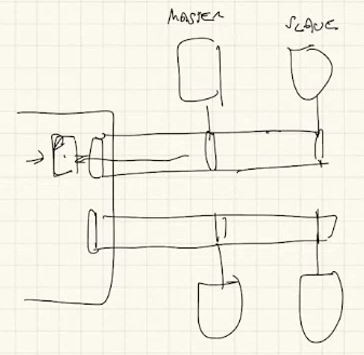 MASTER
SLAVE